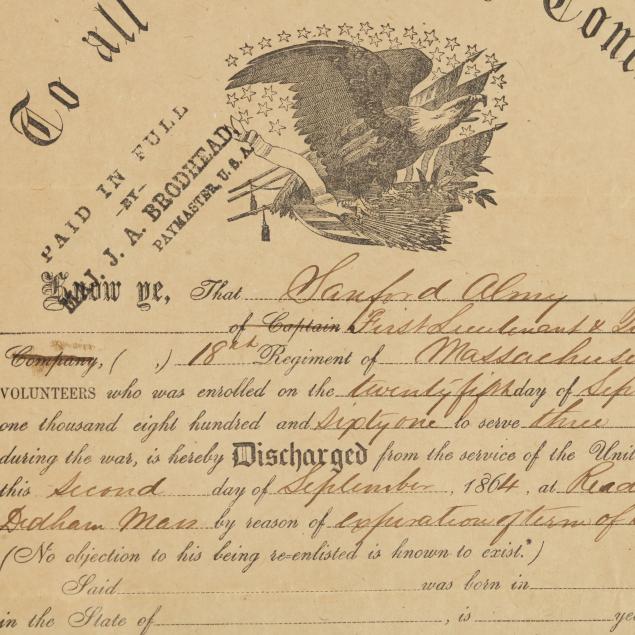 To all
Conc
PAID IN FULL
-BY-
MAJ. J. A. BRODHEAD,
PAYMASTER, U.S.A.
Know ye, That Sanford Almy
of Captain First Lieutenant &
Company, ( ,) 18th Regiment of Massachuse
VOLUNTEERS who was enrolled on the twenty fifth day of Sep
one thousand eight hundred and sixty one to serve three
during the war, is hereby Discharged from the service of the Unit
this Second day of September, 1864, at Read
Dedham Mass by reason of expiration of term of
(No objection to his being re-enlisted is known to exist.*)
Said was born in
in the State of , is ye